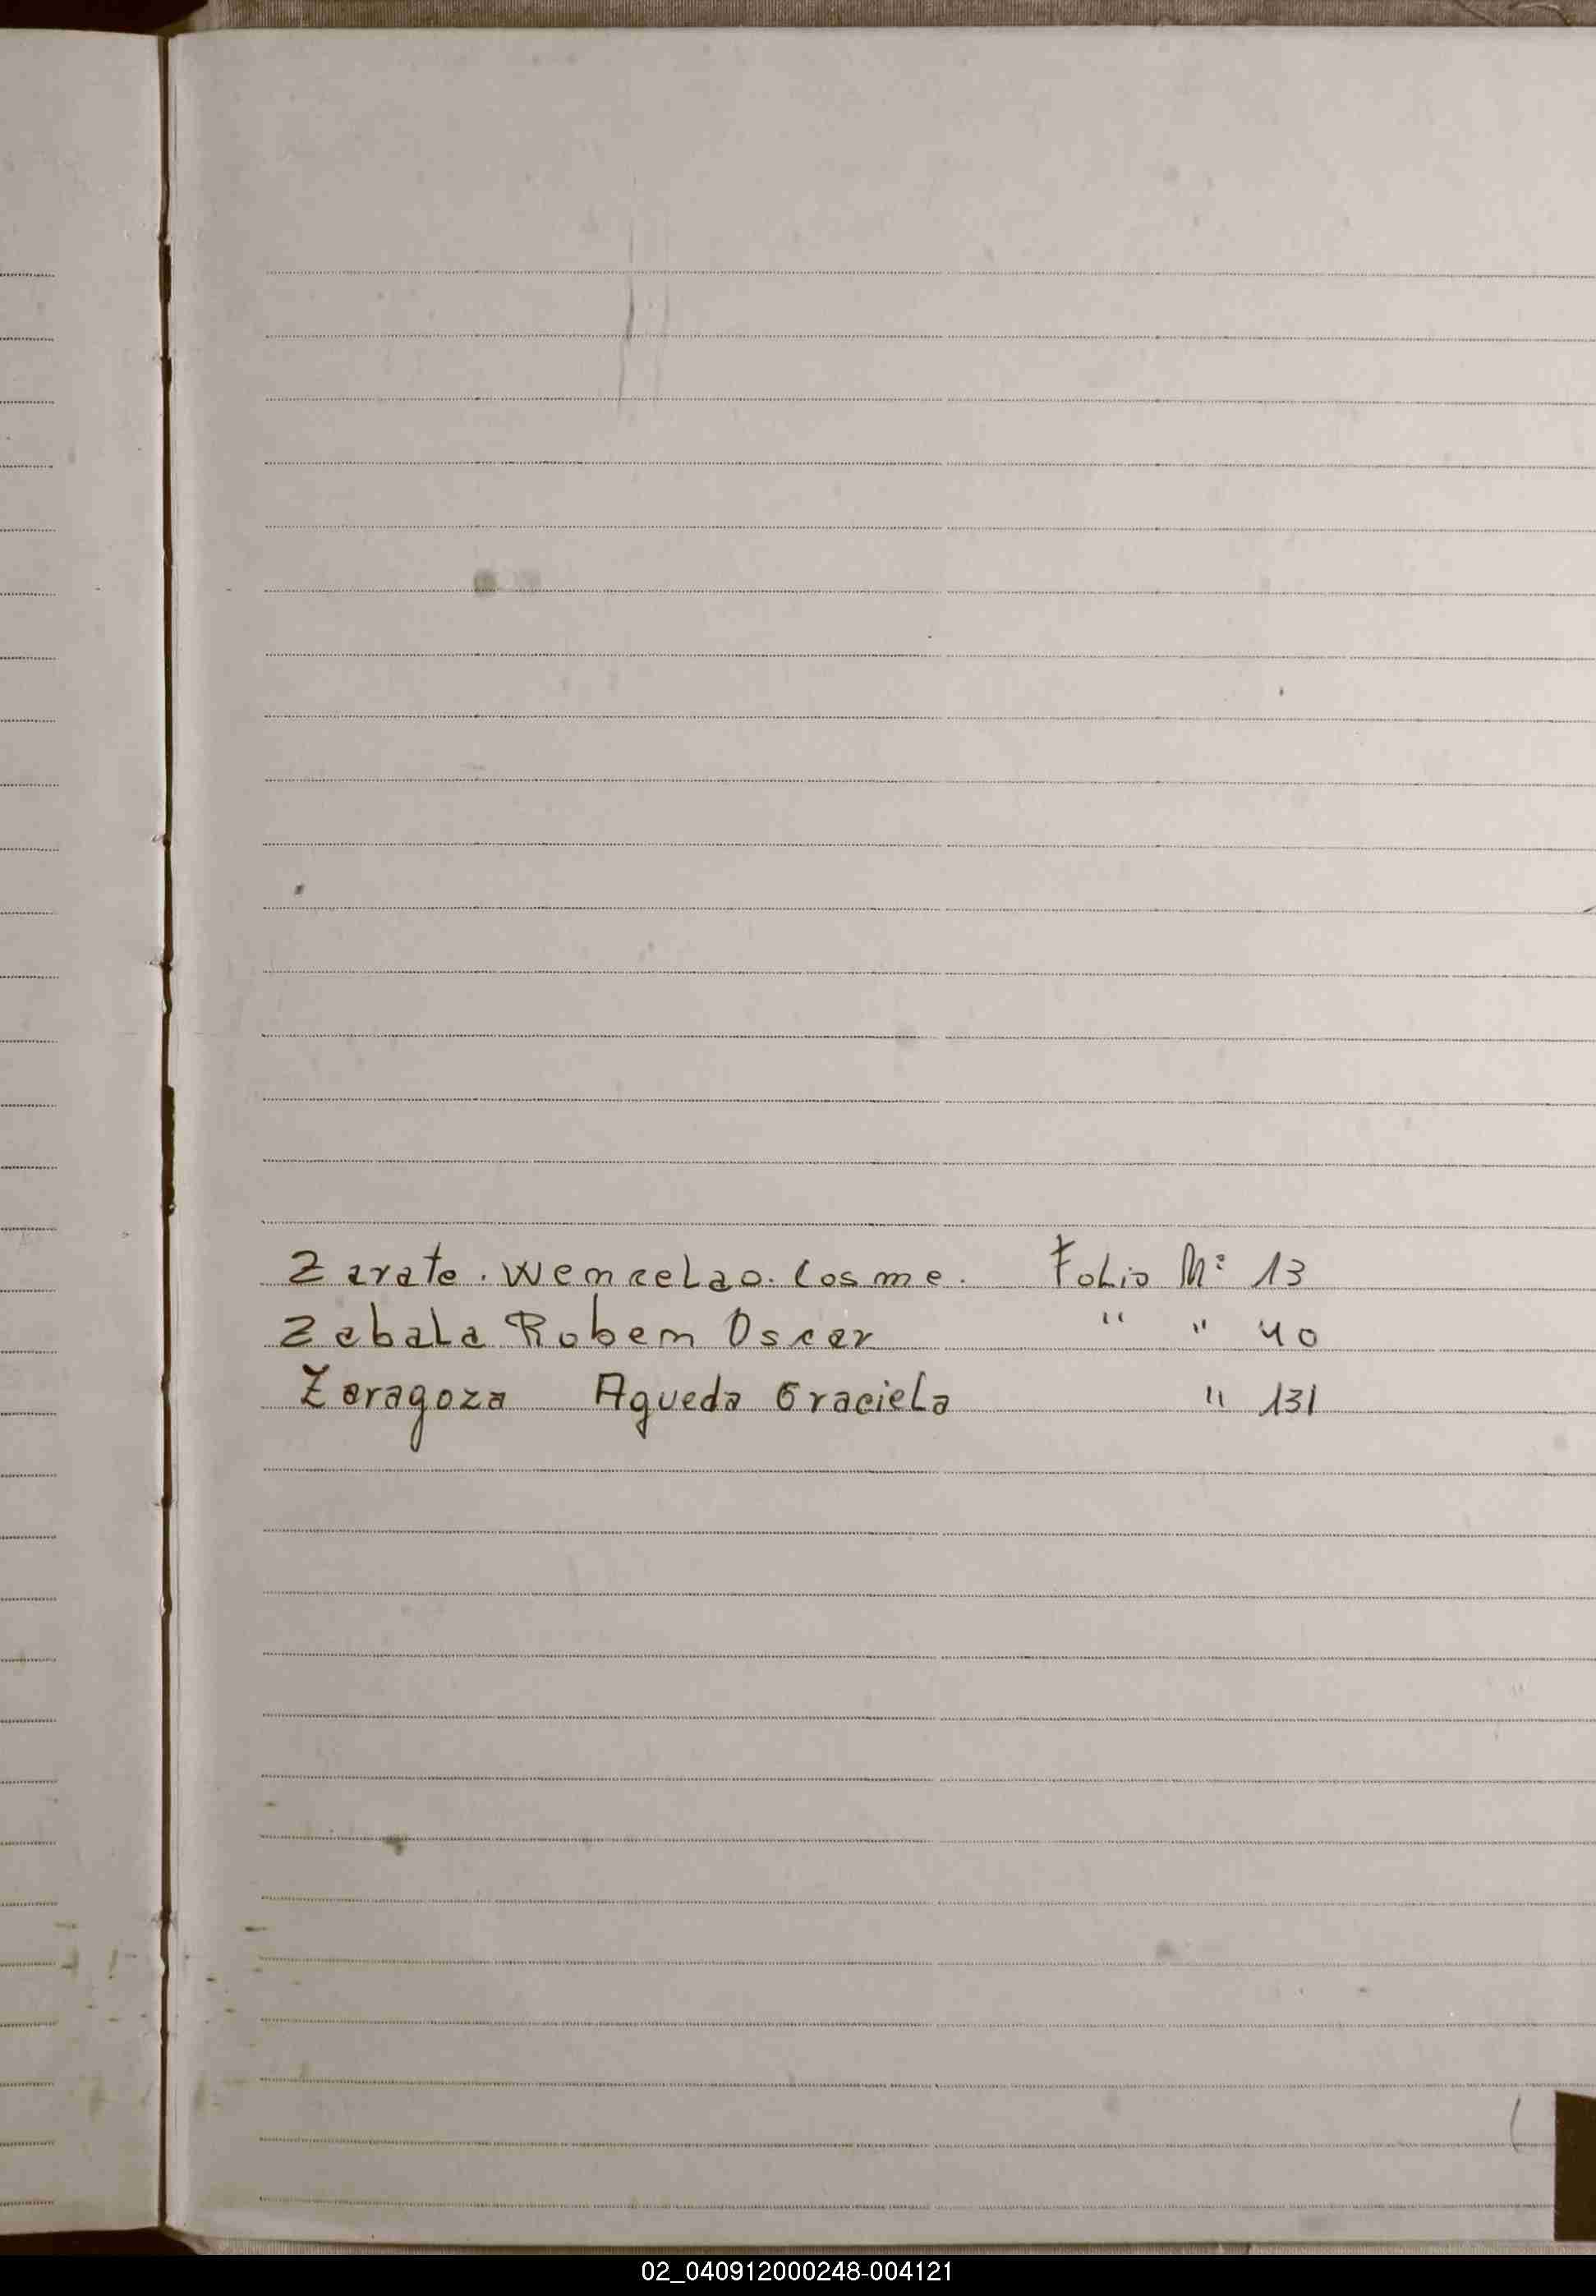 Zarate. Wencelao. Cosme. Folio Nº 13
Zabala Ruben Oscar " " 40
Zaragoza Agueda Graciela " 131
02_040912000248-004121